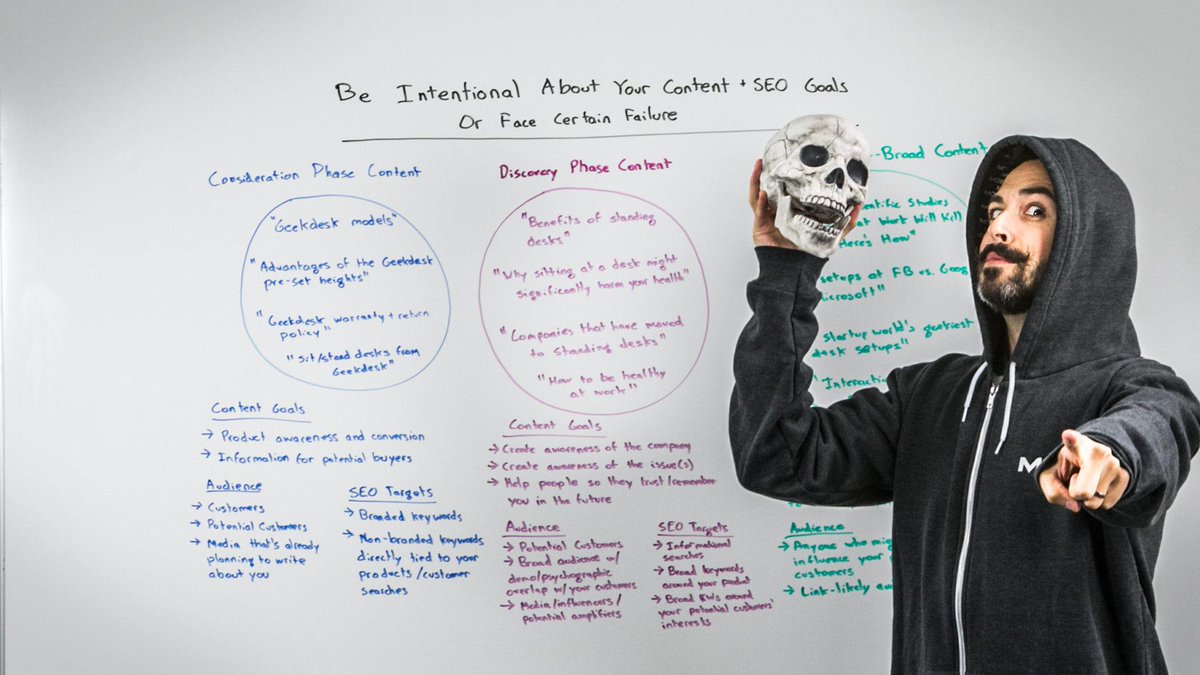 Be Intentional About Your Content + SEO Goals
Or Face Certain Failure
Consideration Phase Content
"Geekdesk models"
"Advantages of the Geekdesk
pre-set heights"
"Geekdesk warranty + return
policy"
"Sit/stand desks from
Geekdesk"
Content Goals
→ Product awareness and conversion
→ Information for potential buyers
Audience
→ Customers
→ Potential Customers
→ Media that's already
planning to write
about you
SEO Targets
→ Branded keywords
→ Non-branded keywords
directly tied to your
products/customer
searches
Discovery Phase Content
"Benefits of standing
desks"
"Why sitting at a desk might
significantly harm your health"
"Companies that have moved
to standing desks"
"How to be healthy
at work"
Content Goals
→ Create awareness of the company
→ Create awareness of the issue(s)
→ Help people so they trust/remember
you in the future
Audience
→ Potential Customers
→ Broad audience w/
demo/psychographic
overlap w/your customers
→ Media/influencers/
potential amplifiers
SEO Targets
→ Informational
searches
→ Broad keywords
around your product
→ Broad KWs around
your potential customers'
interests
-Broad Content
Studies
Work Will Kill
Here's How"
setups at FB vs.
Startup world's geekiest
desk setups"
Audience
→ Anyone who
influence your
customers
→ Link-likely
M